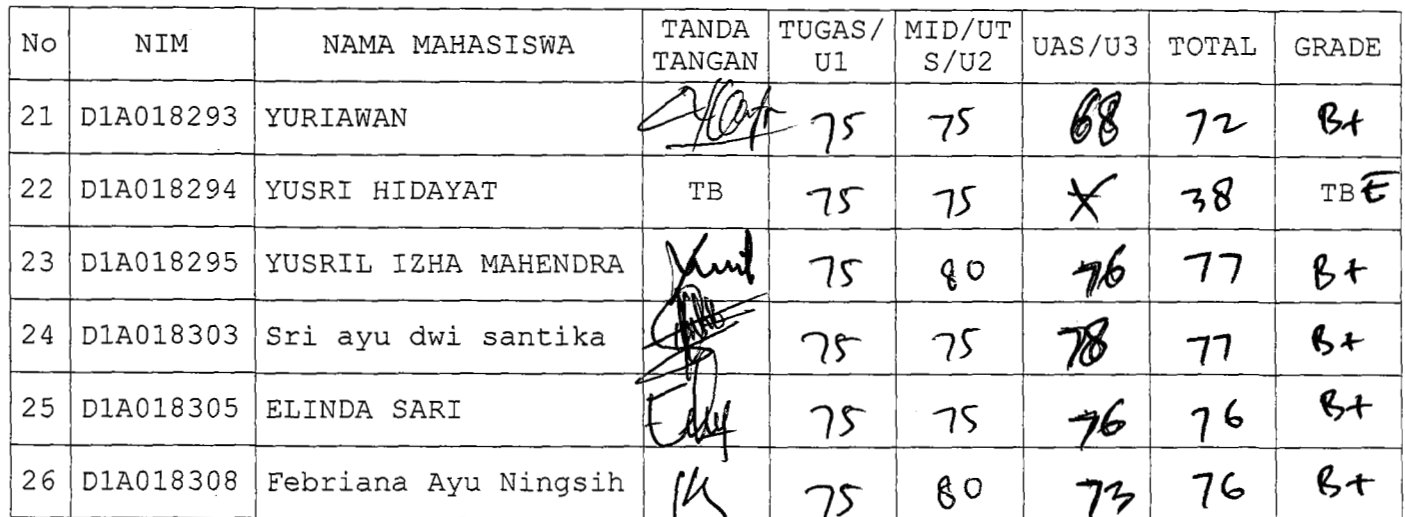 No NIM NAMA MAHASISWA TANDA TANGAN TUGAS/U1 MID/UTS/U2 UAS/U3 TOTAL GRADE
21 D1A018293 YURIAWAN 75 75 68 72 B+
22 D1A018294 YUSRI HIDAYAT TB 75 75 X 38 TB E
23 D1A018295 YUSRIL IZHA MAHENDRA 75 80 76 77 B+
24 D1A018303 Sri ayu dwi santika 75 75 78 77 B+
25 D1A018305 ELINDA SARI 75 75 76 76 B+
26 D1A018308 Febriana Ayu Ningsih 75 80 73 76 B+